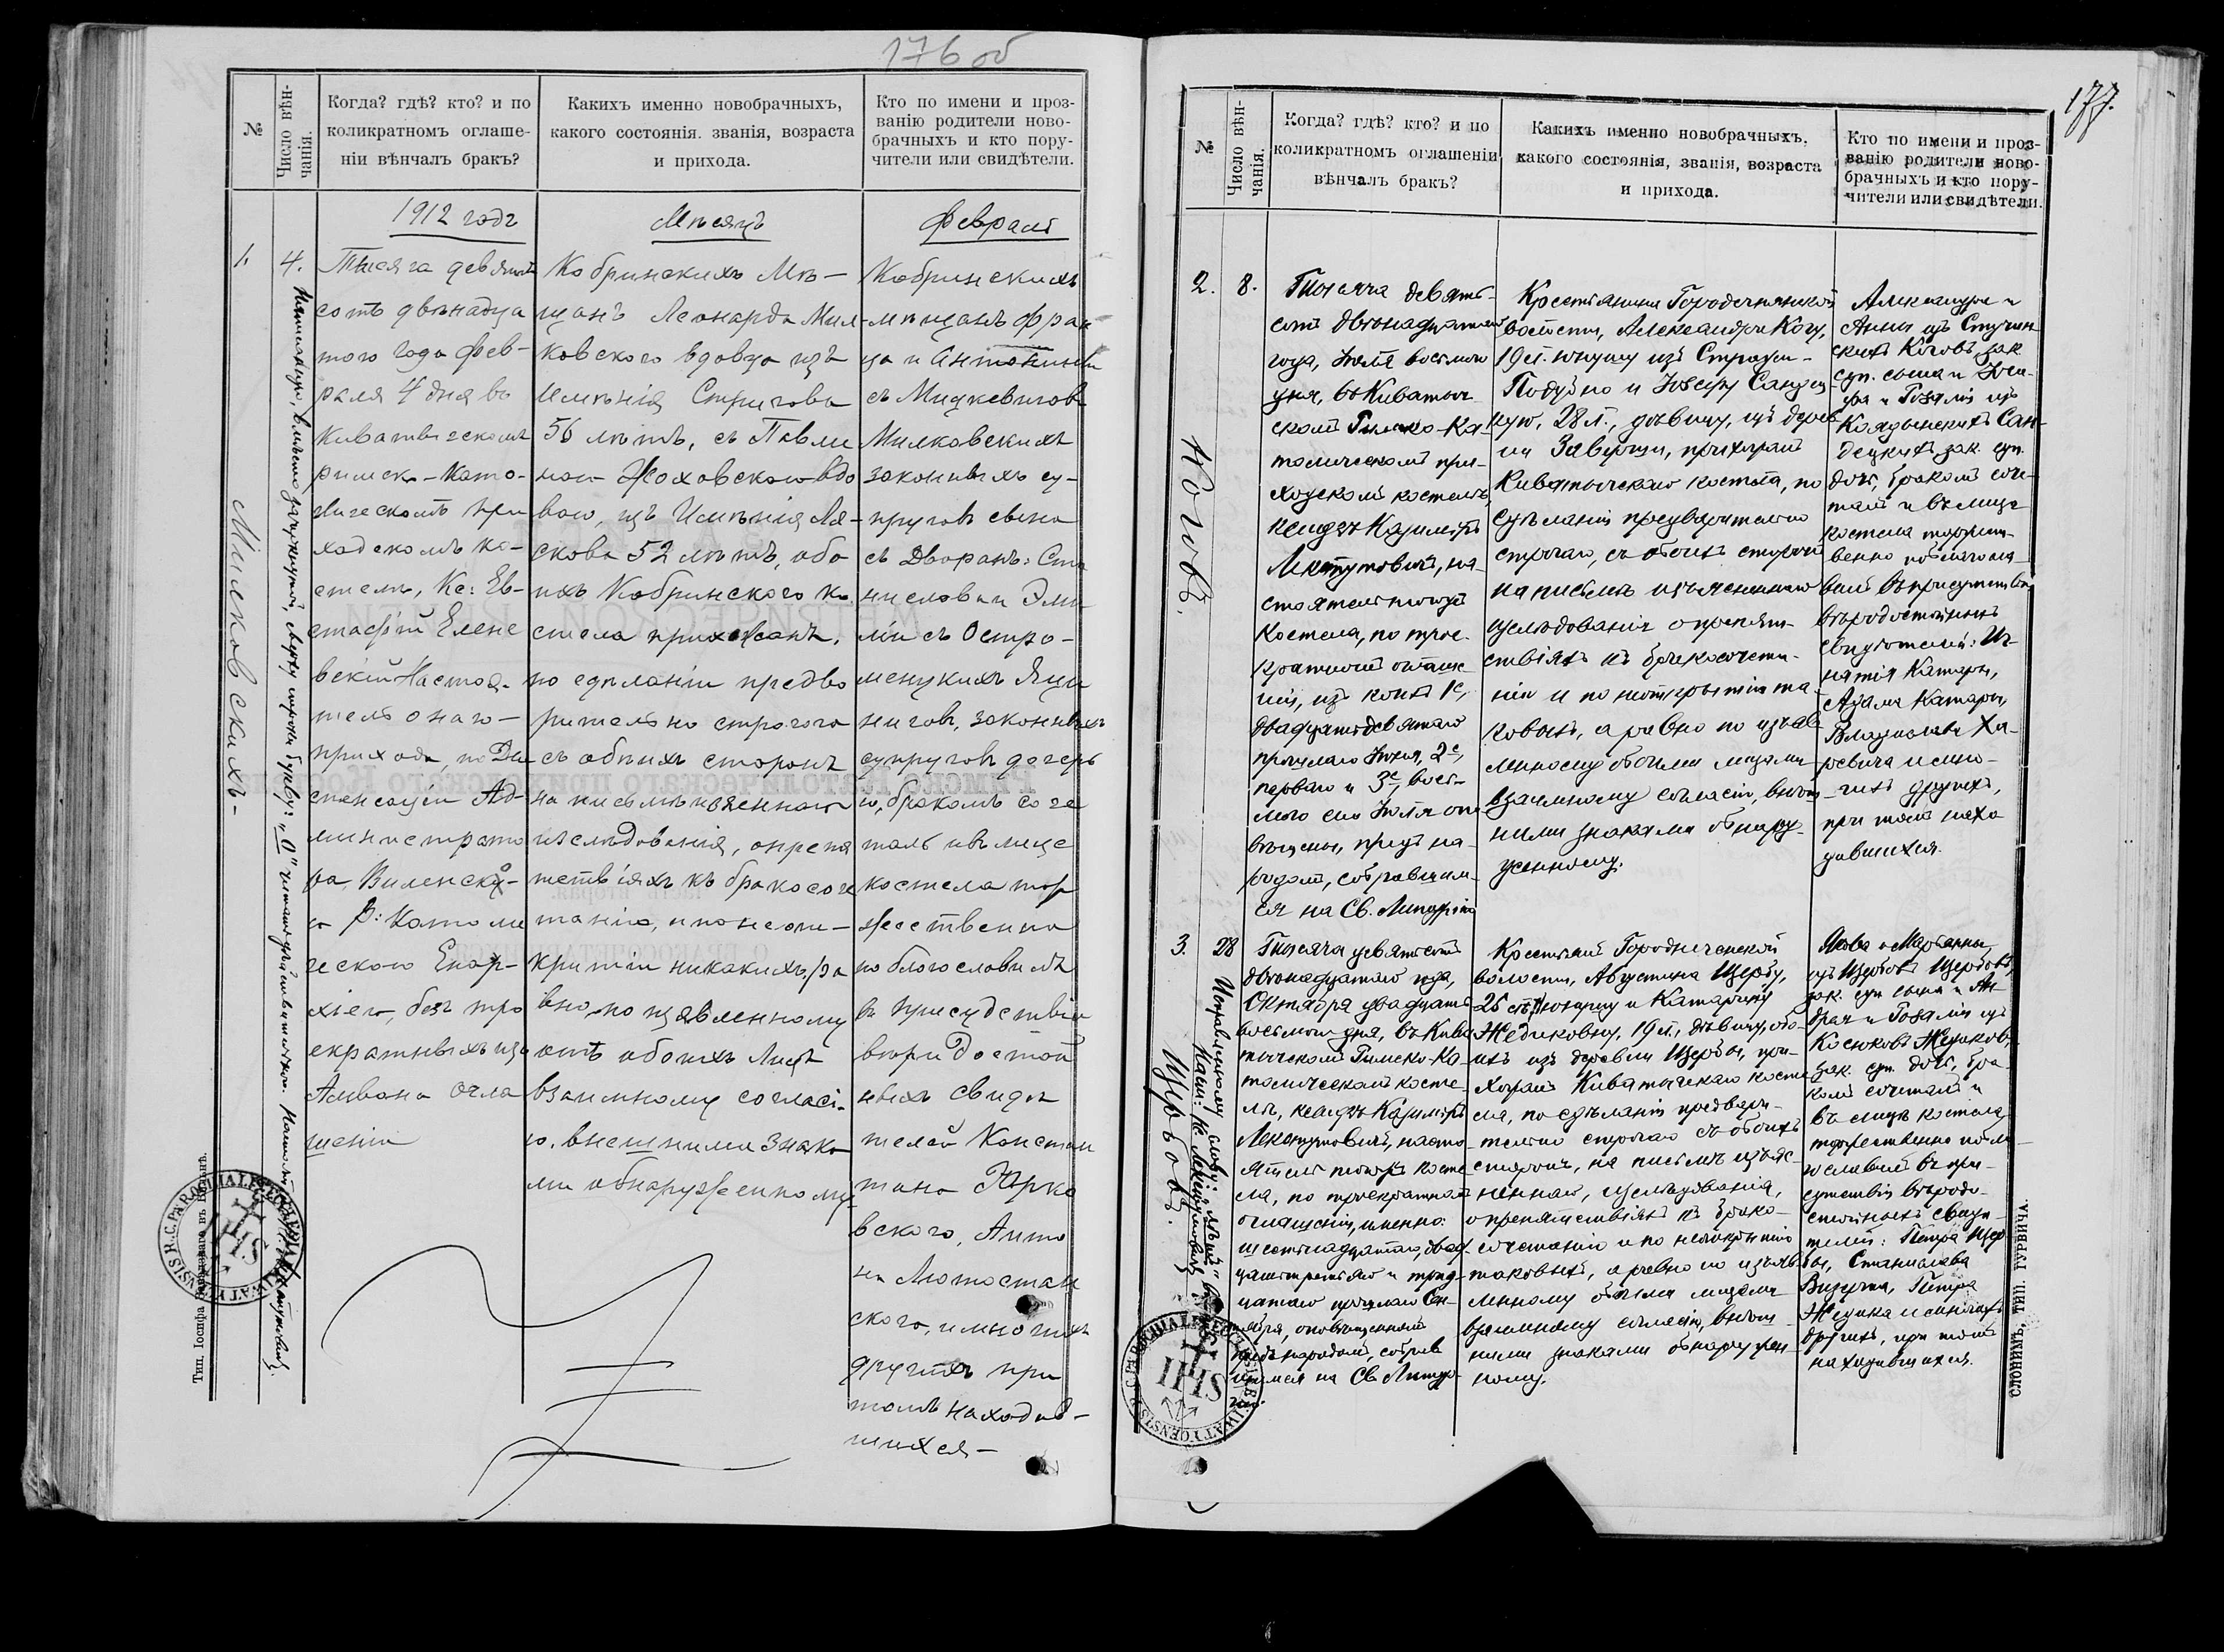 176 об
№
Число вѣн-
чанія.
Когда? гдѣ? кто? и по
коликратномъ оглаше-
ніи вѣнчалъ бракъ?
Какихъ именно новобрачныхъ,
какого состоянія. званія, возраста
и прихода.
Кто по имени и проз-
ванію родители ново-
брачныхъ и кто пору-
чители или свидѣтели.
1912 годъ
Мѣсяцъ
Февраль
1.
4.
Милковскихъ-
Тысяча девять
сотъ двѣнадца
того года Фев-
раля 4 дня въ
Киватыческомъ
римск-като-
лическомъ при
ходскомъ ко-
стелѣ, Кс: Ев-
стафій Елене
вскій Настоя-
тель онаго-
прихода, по Ди
спенсаціи Ад-
министрато
ра, Виленско-
й Р: Католи
ческою Епар-
хіею, безъ тро
екратныхъ изъ
Амвона огла
шеніи
Кобринскихъ Мѣ-
щанъ Леонарда Мил-
ковского вдовца изъ
Имѣнія Стригова
56 лѣтъ, съ Павли
ною Жоховскою вдо
вою, изъ Имѣнія Ля-
скова 52 лѣтъ, обо
ихъ Кобринского ко
стела прихожанъ,
по сдѣланіи предва
рительно строгого
съ обѣихъ сторонъ
на письмѣ изясненнаго
изслѣдованія, о препя
тствіяхъ къ бракосоче
танію, и по неот-
критіи никакихъ, ра
вно, по изявленному
отъ обоихъ Лицъ
взаимному согласі-
ю, внешними знака
ми обнаруженному
Кобринскихъ
мѣщанъ Фран
ца и Антонины
съ Мицкевичовъ
Милковскихъ
законныхъ су-
пруговъ сына
съ Дворанъ: Ста
нислова и Эми
ліи съ Остро-
менцкихъ Яци
ничовъ, законныхъ
супруговъ дочерь
ю, бракомъ соче
талъ и въ лице
костела тор
жественно
поблогословилъ
въ присудствіи
вѣридостой
ныхъ Свидѣ
телей Констан
тана Юрко
вского, Анто
на Лютостан
ского, и многихъ
другихъ при
томъ находив-
шихся-
Тип. Іосифа
177.
№
Число вѣн-
чанія.
Когда? гдѣ? кто? и по
коликратномъ оглашеніи
вѣнчалъ бракъ?
Какихъ именно новобрачныхъ,
какого состоянія, званія, возраста
и прихода.
Кто по имени и проз-
ванію родители ново-
брачныхъ и кто пору-
чители или свидѣтели.
2.
8.
Коговъ.
Тысяча девять-
сотъ двѣнадцатаго
года, Іюля восьмого
дня, въ Киватыч-
скомъ Римско-Ка-
толическомъ при-
ходскомъ костелѣ,
ксендзъ Казиміръ
Мкштутовичъ, на-
стоятель того же
Костела, по трое-
кратномъ оглаше
ніи, изъ коихъ 1е,
двадцатьдевятаго
прошлаго Іюня, 2е,
перваго и 3е, вось-
мого сего Іюля опо
вѣщены, предъ на-
родомъ, собравшим-
ся на Св. Литургію
Крестьянина Городечнянской
волости, Александра Когу,
19 л. юношу изъ
и Іозефу Сандец
кую, 28 л., дѣвицу, изъ дерев
ни прихожанъ
Киватыческаго костела, по
сдѣланіи предварительно
строгаго, съ обоихъ сторонъ
на письмѣ изъясненнаго
изслѣдованія о препят-
ствіяхъ къ бракосочета-
нію и по неоткрытіи та-
ковыхъ, а равно по изъяв
ленному обоими лицами
взаимному согласію, внѣш-
ними знаками обнару-
женному.
Александра и
Анны изъ
скихъ Коговъ, зак.
суп. сына и Іоси-
фа и Розаліи изъ
Сан-
децкихъ, зак. суп.
дочь, бракомъ соче-
талъ и въ лице
костела торжест-
венно поблагосла-
вилъ въ присутствіи
вѣродостойныхъ
свидѣтелей: Иг-
натія Катары,
Адама Катары,
Владислава Ха-
ревича и мно-
гихъ другихъ,
при томъ нахо
дившихся.
3.
28
Щербовъ.
Тысяча девятьсотъ
двѣнадцатаго года,
Октября двадцать
восьмого дня, въ Кива
тыческомъ Римско-Ка-
толическомъ косте-
лѣ, ксендзъ Казиміръ
Мкштутовичъ, насто-
ятель того же косте
ла, по троекратномъ
оглашеніи, именно:
шестнадцатаго, двад-
цатьтретьяго и трид-
цатаго прошлаго Сен-
тября, оповѣщенномъ
предъ народомъ, собрав
шимся на Св. Литур-
гію.
Крестьянъ Городечнянской
волости, Августина Щербу,
25 лѣтъ юношу и Катарину
Жедиковну, 19 л., дѣвицу, обо-
ихъ изъ деревни Щербы, при-
хожанъ Киватыческаго косте
ла, по сдѣланіи предвари-
тельно строгаго съ обоихъ
сторонъ, на письмѣ изъяс-
неннаго, изслѣдованія,
о препятствіяхъ къ брако-
сочетанію и по неоткрытію
таковыхъ, а равно по изъяв-
ленному обоими лицами
взаимному согласію, внѣш-
ними знаками обнаружен-
ному.
Якова и Маріанны
изъ Щербовъ Щербовъ,
зак. суп. сына и Ан-
дрея и Розаліи изъ
Косюковъ Жедиковъ,
зак. суп. дочь, бра-
комъ сочеталъ и
въ лицѣ костела
торжественно побла-
гославилъ въ при-
сутствіи вѣродо-
стойныхъ свидѣ-
телей: Петра Щер
бы, Станислава
Петра
Жедика и иныхъ
другихъ, при томъ
находившихся.
СЛОНИМЪ, ТИП. ГУРВИЧА.